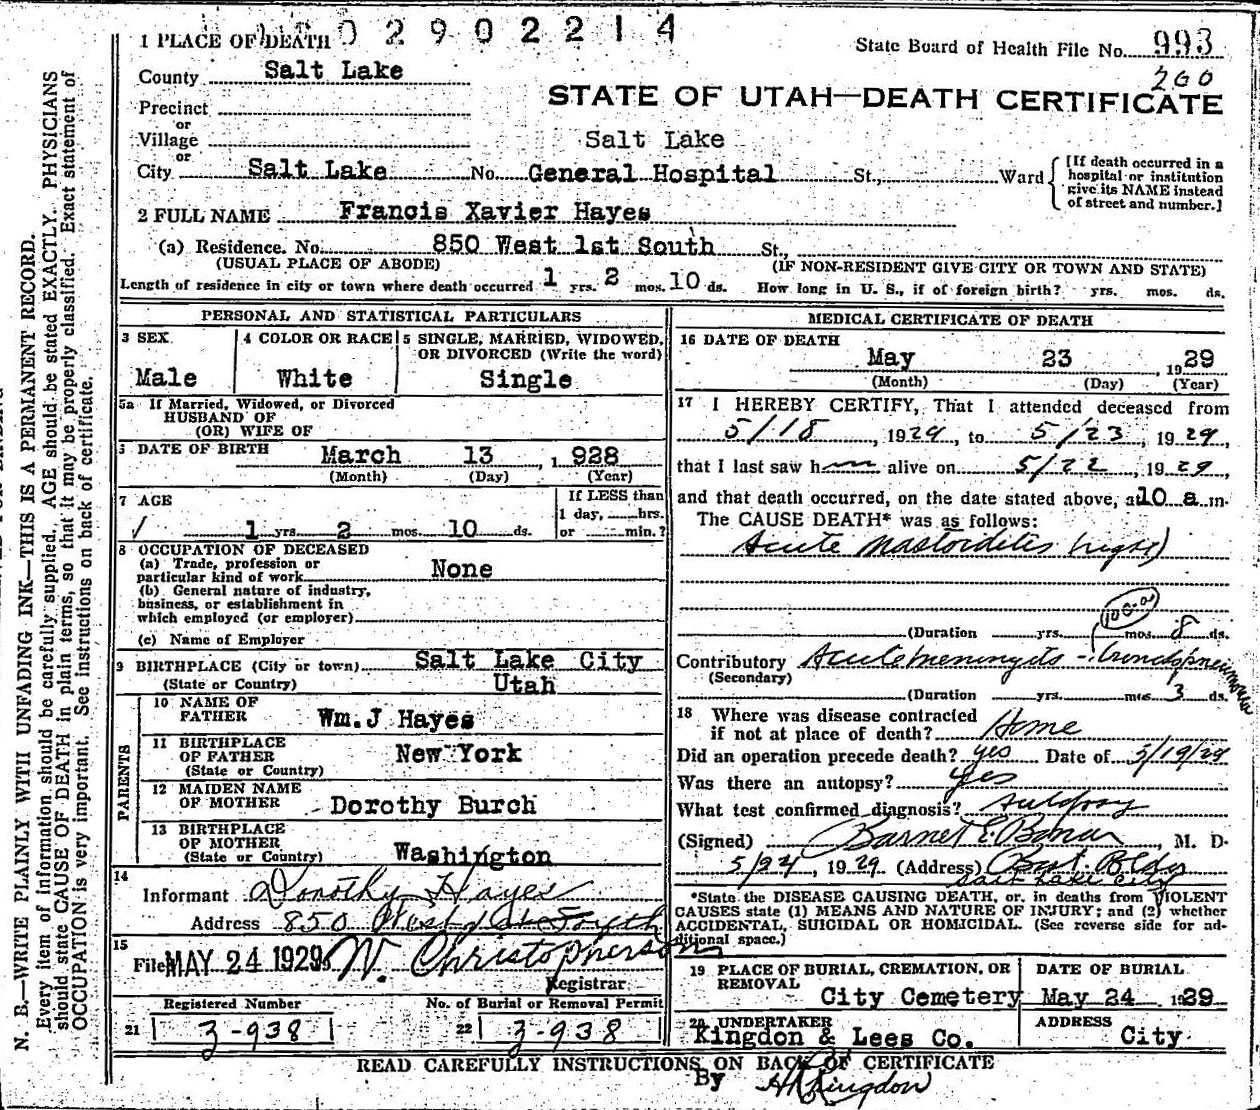 02902214
1 PLACE OF DEATH
State Board of Health File No. 993
200
County Salt Lake
STATE OF UTAH—DEATH CERTIFICATE
Precinct
or
Village
Salt Lake
or
City Salt Lake No. General Hospital St., Ward
[If death occurred in a hospital or institution give its NAME instead of street and number.]
2 FULL NAME Francis Xavier Hayes
(a) Residence. No. 850 West 1st South St.,
(USUAL PLACE OF ABODE) (IF NON-RESIDENT GIVE CITY OR TOWN AND STATE)
Length of residence in city or town where death occurred 1 yrs. 2 mos. 10 ds. How long in U. S., if of foreign birth? yrs. mos. ds.
PERSONAL AND STATISTICAL PARTICULARS
3 SEX
Male
4 COLOR OR RACE
White
5 SINGLE, MARRIED, WIDOWED, OR DIVORCED (Write the word)
Single
5a If Married, Widowed, or Divorced
HUSBAND OF
(OR) WIFE OF
DATE OF BIRTH March 13, 1928
(Month) (Day) (Year)
7 AGE
1 yrs. 2 mos. 10 ds.
If LESS than
1 day, hrs.
or min.?
8 OCCUPATION OF DECEASED
(a) Trade, profession or
particular kind of work None
(b) General nature of industry,
business, or establishment in
which employed (or employer)
(c) Name of Employer
9 BIRTHPLACE (City or town) Salt Lake City
(State or Country) Utah
PARENTS
10 NAME OF
FATHER Wm. J Hayes
11 BIRTHPLACE
OF FATHER New York
(State or Country)
12 MAIDEN NAME
OF MOTHER Dorothy Burch
13 BIRTHPLACE
OF MOTHER
(State or Country) Washington
14
Informant Dorothy Hayes
Address 850 West 1st South
15
Filed MAY 24 1929 W. Christopherson
Registrar
Registered Number No. of Burial or Removal Permit
21 3-938 22 3-938
MEDICAL CERTIFICATE OF DEATH
16 DATE OF DEATH
May 23, 1929
(Month) (Day) (Year)
17 I HEREBY CERTIFY, That I attended deceased from
5/18, 1929, to 5/23, 1929,
that I last saw him alive on 5/22, 1929,
and that death occurred, on the date stated above, at 10 a m.
The CAUSE DEATH* was as follows:
Acute Mastoiditis (right)
(Duration yrs. mos. 8 ds.
Contributory Acute meningitis - bronchopneumonia
(Secondary)
(Duration yrs. mos. 3 ds.
18 Where was disease contracted
if not at place of death? Home
Did an operation precede death? yes Date of 5/19/29
Was there an autopsy? Yes
What test confirmed diagnosis? Autopsy
(Signed) Barnet E. Bonar, M. D.
5/24, 1929 (Address) Bldg
Salt Lake City
*State the DISEASE CAUSING DEATH, or, in deaths from VIOLENT
CAUSES state (1) MEANS AND NATURE OF INJURY; and (2) whether
ACCIDENTAL, SUICIDAL OR HOMICIDAL. (See reverse side for ad-
ditional space.)
19 PLACE OF BURIAL, CREMATION, OR
REMOVAL
City Cemetery
DATE OF BURIAL
May 24 1929
20 UNDERTAKER
Kingdon & Lees Co.
ADDRESS
City
READ CAREFULLY INSTRUCTIONS ON BACK OF CERTIFICATE
By Kingdon
N. B.—WRITE PLAINLY WITH UNFADING INK—THIS IS A PERMANENT RECORD.
Every item of information should be carefully supplied. AGE should be stated EXACTLY. PHYSICIANS
should state CAUSE OF DEATH in plain terms, so that it may be properly classified. Exact statement of
OCCUPATION is very important. See instructions on back of certificate.